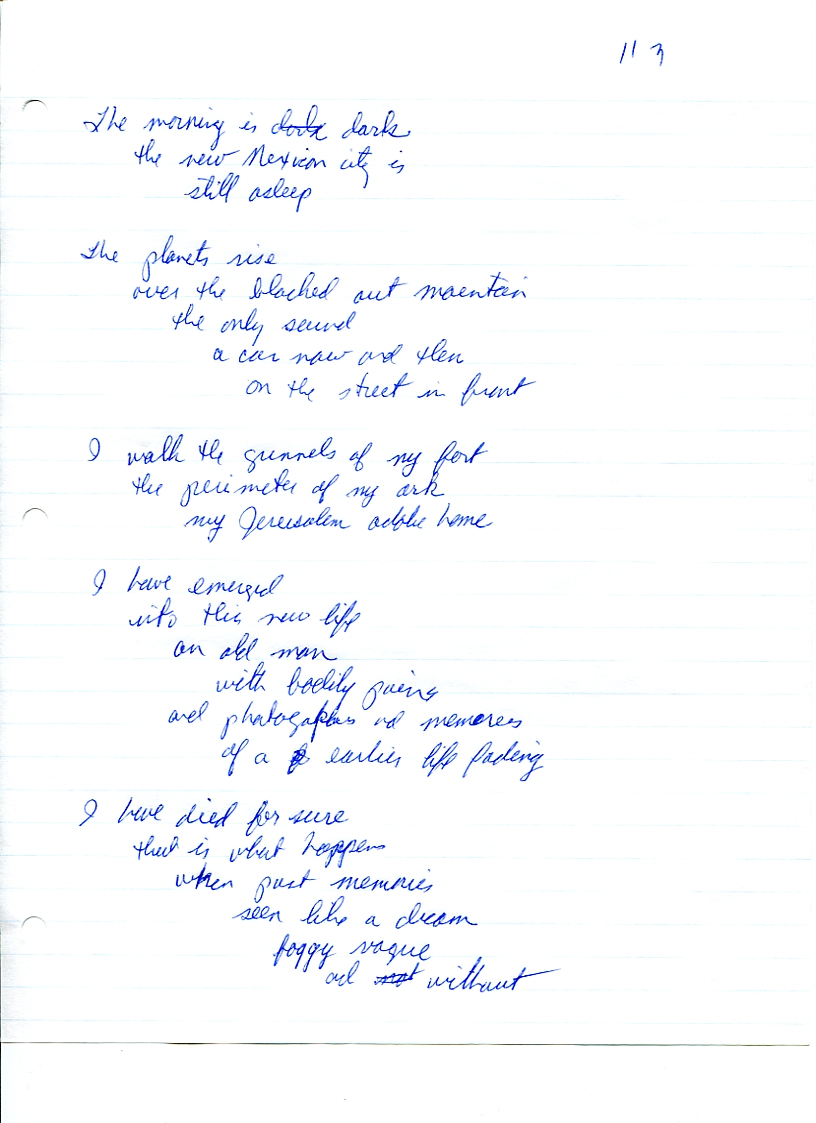 113
The morning is dark dark
the new Mexican city is
still asleep
The planets rise
over the blacked out mountain
the only sound
a car now and then
on the street in front
I walk the gunnels of my fort
the perimeter of my ark
my Jerusalem adobe home
I have emerged
into this new life
an old man
with bodily pains
and photographs and memories
of a earlier life fading
I have died for sure
that is what happens
when past memories
seem like a dream
foggy vague
and not without